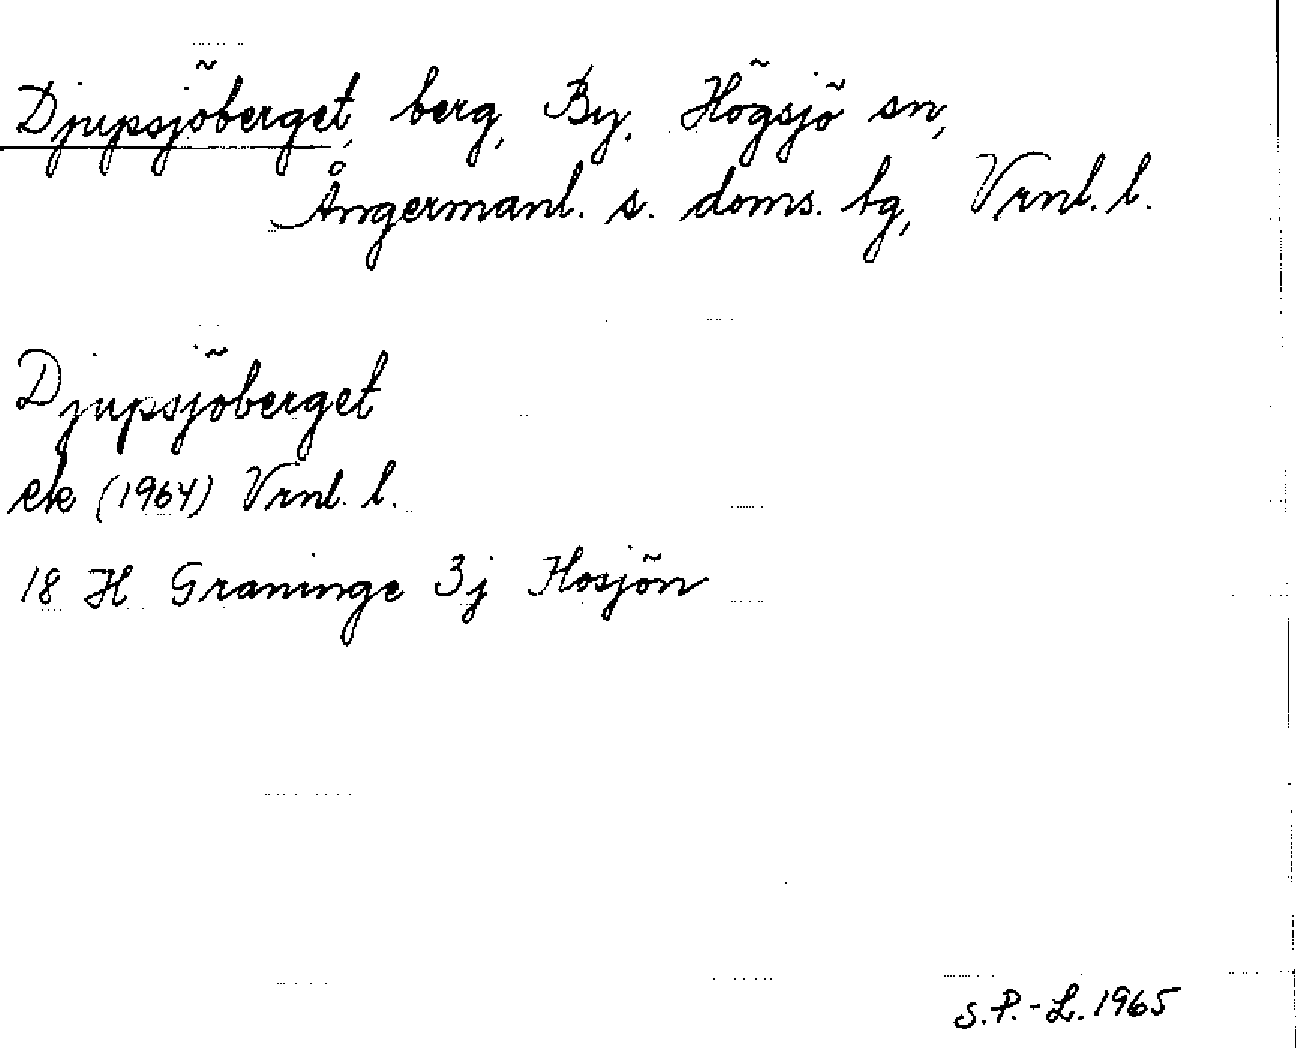 Djupsjöberget, berg, By, Högsjö sn,
Ångermanl. s. doms. tg, Vrnl. l.
Djupsjöberget
ek (1964) Vrnl. l.
18 H Graninge 3j Hosjön
S.P.-L. 1965